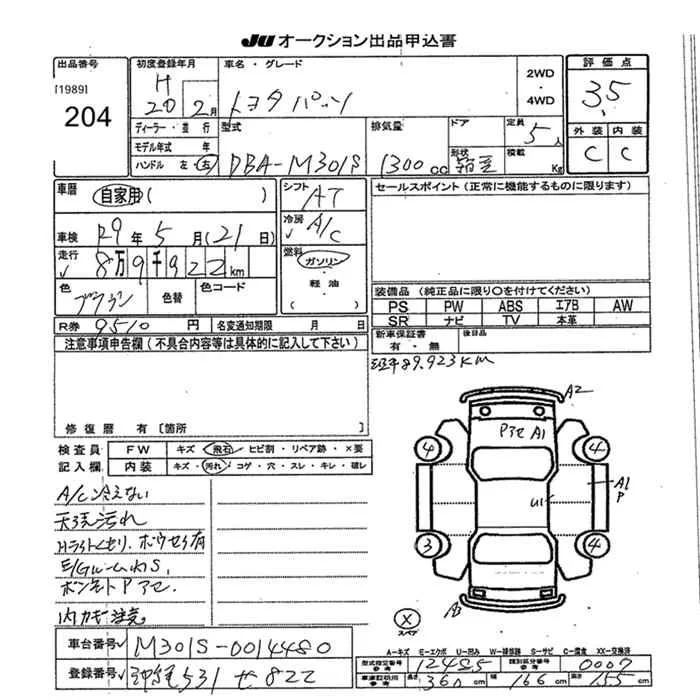 JU オークション出品申込書
出品番号
[1989]
204
初度登録年月
H
20 2月
ディーラー・並行
モデル年式 年
ハンドル 左・右
車名・グレード
トヨタ パッソ
2WD
・
4WD
型式
DBA-M301S
排気量
1300cc
ドア
・
形状
定員
5人
積載
Kg
評価点
3.5
外装 内装
C C
車歴
自家用( )
車検 R9年5月(21日)
走行 8万9千922km
色
ブラウン
色替
色コード
R券 9510円
名変通知期限 月 日
シフト
AT
冷房
A/C
燃料
ガソリン
・
軽油
・
セールスポイント(正常に機能するものに限ります)
装備品(純正品に限り○を付けてください)
PS PW ABS エアB AW
SR ナビ TV 本革
新車保証書
有・無
後日品
89.923KM
注意事項申告欄(不具合内容等は具体的に記入して下さい)
修復歴 有〔箇所 〕
検査員
記入欄
FW キズ・飛石・ヒビ割・リペア跡・×要
内装 キズ・汚れ・コゲ・穴・スレ・キレ・破レ
A/C冷えない
天張汚れ
Hライトくもり、ボウセイ有
E/GルームWS、
ボンネットPアセ
内カギ注意
A2
PアセA1
4 4
A1
P
U1
3 4
A2
X
スペア
A-キズ E-エクボ U-凹み W-補修跡 S-サビ C-腐食 XX-交換済
車台番号 M301S-0014480
登録番号 沖縄531せ822
型式指定番号
参考
12485
類別区分番号
参考
0007
車庫証明用
参考
長さ 360cm 幅 166cm 高さ 155cm